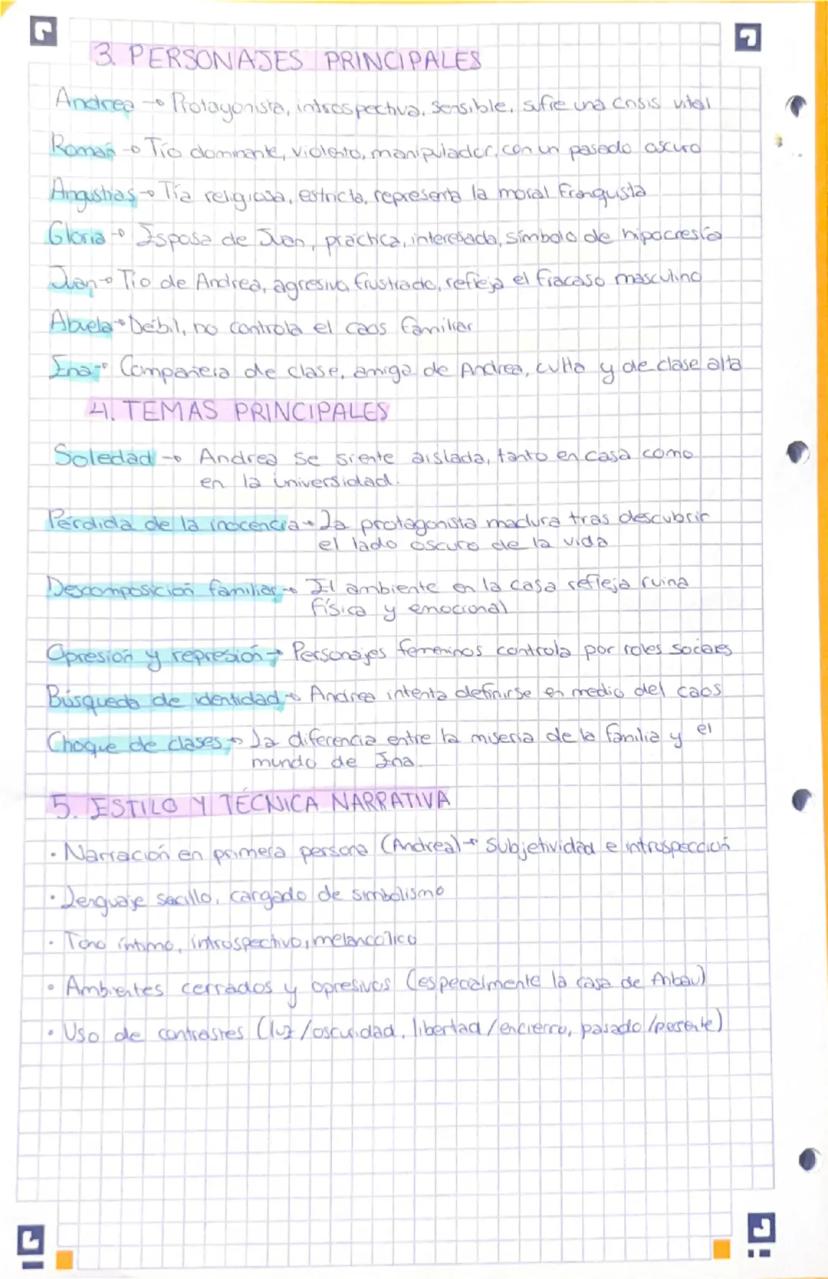 3. PERSONAJES PRINCIPALES
Andrea → Protagonista, introspectiva, sensible, sufre una crisis vital
Román → Tío dominante, violento, manipulador, con un pasado oscuro
Angustias → Tía religiosa, estricta, representa la moral franquista
Gloria → Esposa de Juan, práctica, interesada, símbolo de hipocresía
Juan → Tío de Andrea, agresivo, frustrado, refleja el fracaso masculino
Abuela → Débil, no controla el caos familiar
Ena → Compañera de clase, amiga de Andrea, culta y de clase alta
4. TEMAS PRINCIPALES
Soledad → Andrea se siente aislada, tanto en casa como
en la universidad.
Pérdida de la inocencia → La protagonista madura tras descubrir
el lado oscuro de la vida
Descomposición familiar → El ambiente en la casa refleja ruina
física y emocional
Opresión y represión → Personajes femeninos controla por roles sociales
Búsqueda de identidad → Andrea intenta definirse en medio del caos
Choque de clases → La diferencia entre la miseria de la familia y el
mundo de Ena.
5. ESTILO Y TÉCNICA NARRATIVA
· Narración en primera persona (Andrea) → Subjetividad e introspección
· Lenguaje secillo, cargado de simbolismo
· Tono íntimo, introspectivo, melancólico
· Ambientes cerrados y opresivos (especialmente la casa de Aribau)
· Uso de contrastes (luz/oscuridad, libertad/encierro, pasado/presente)